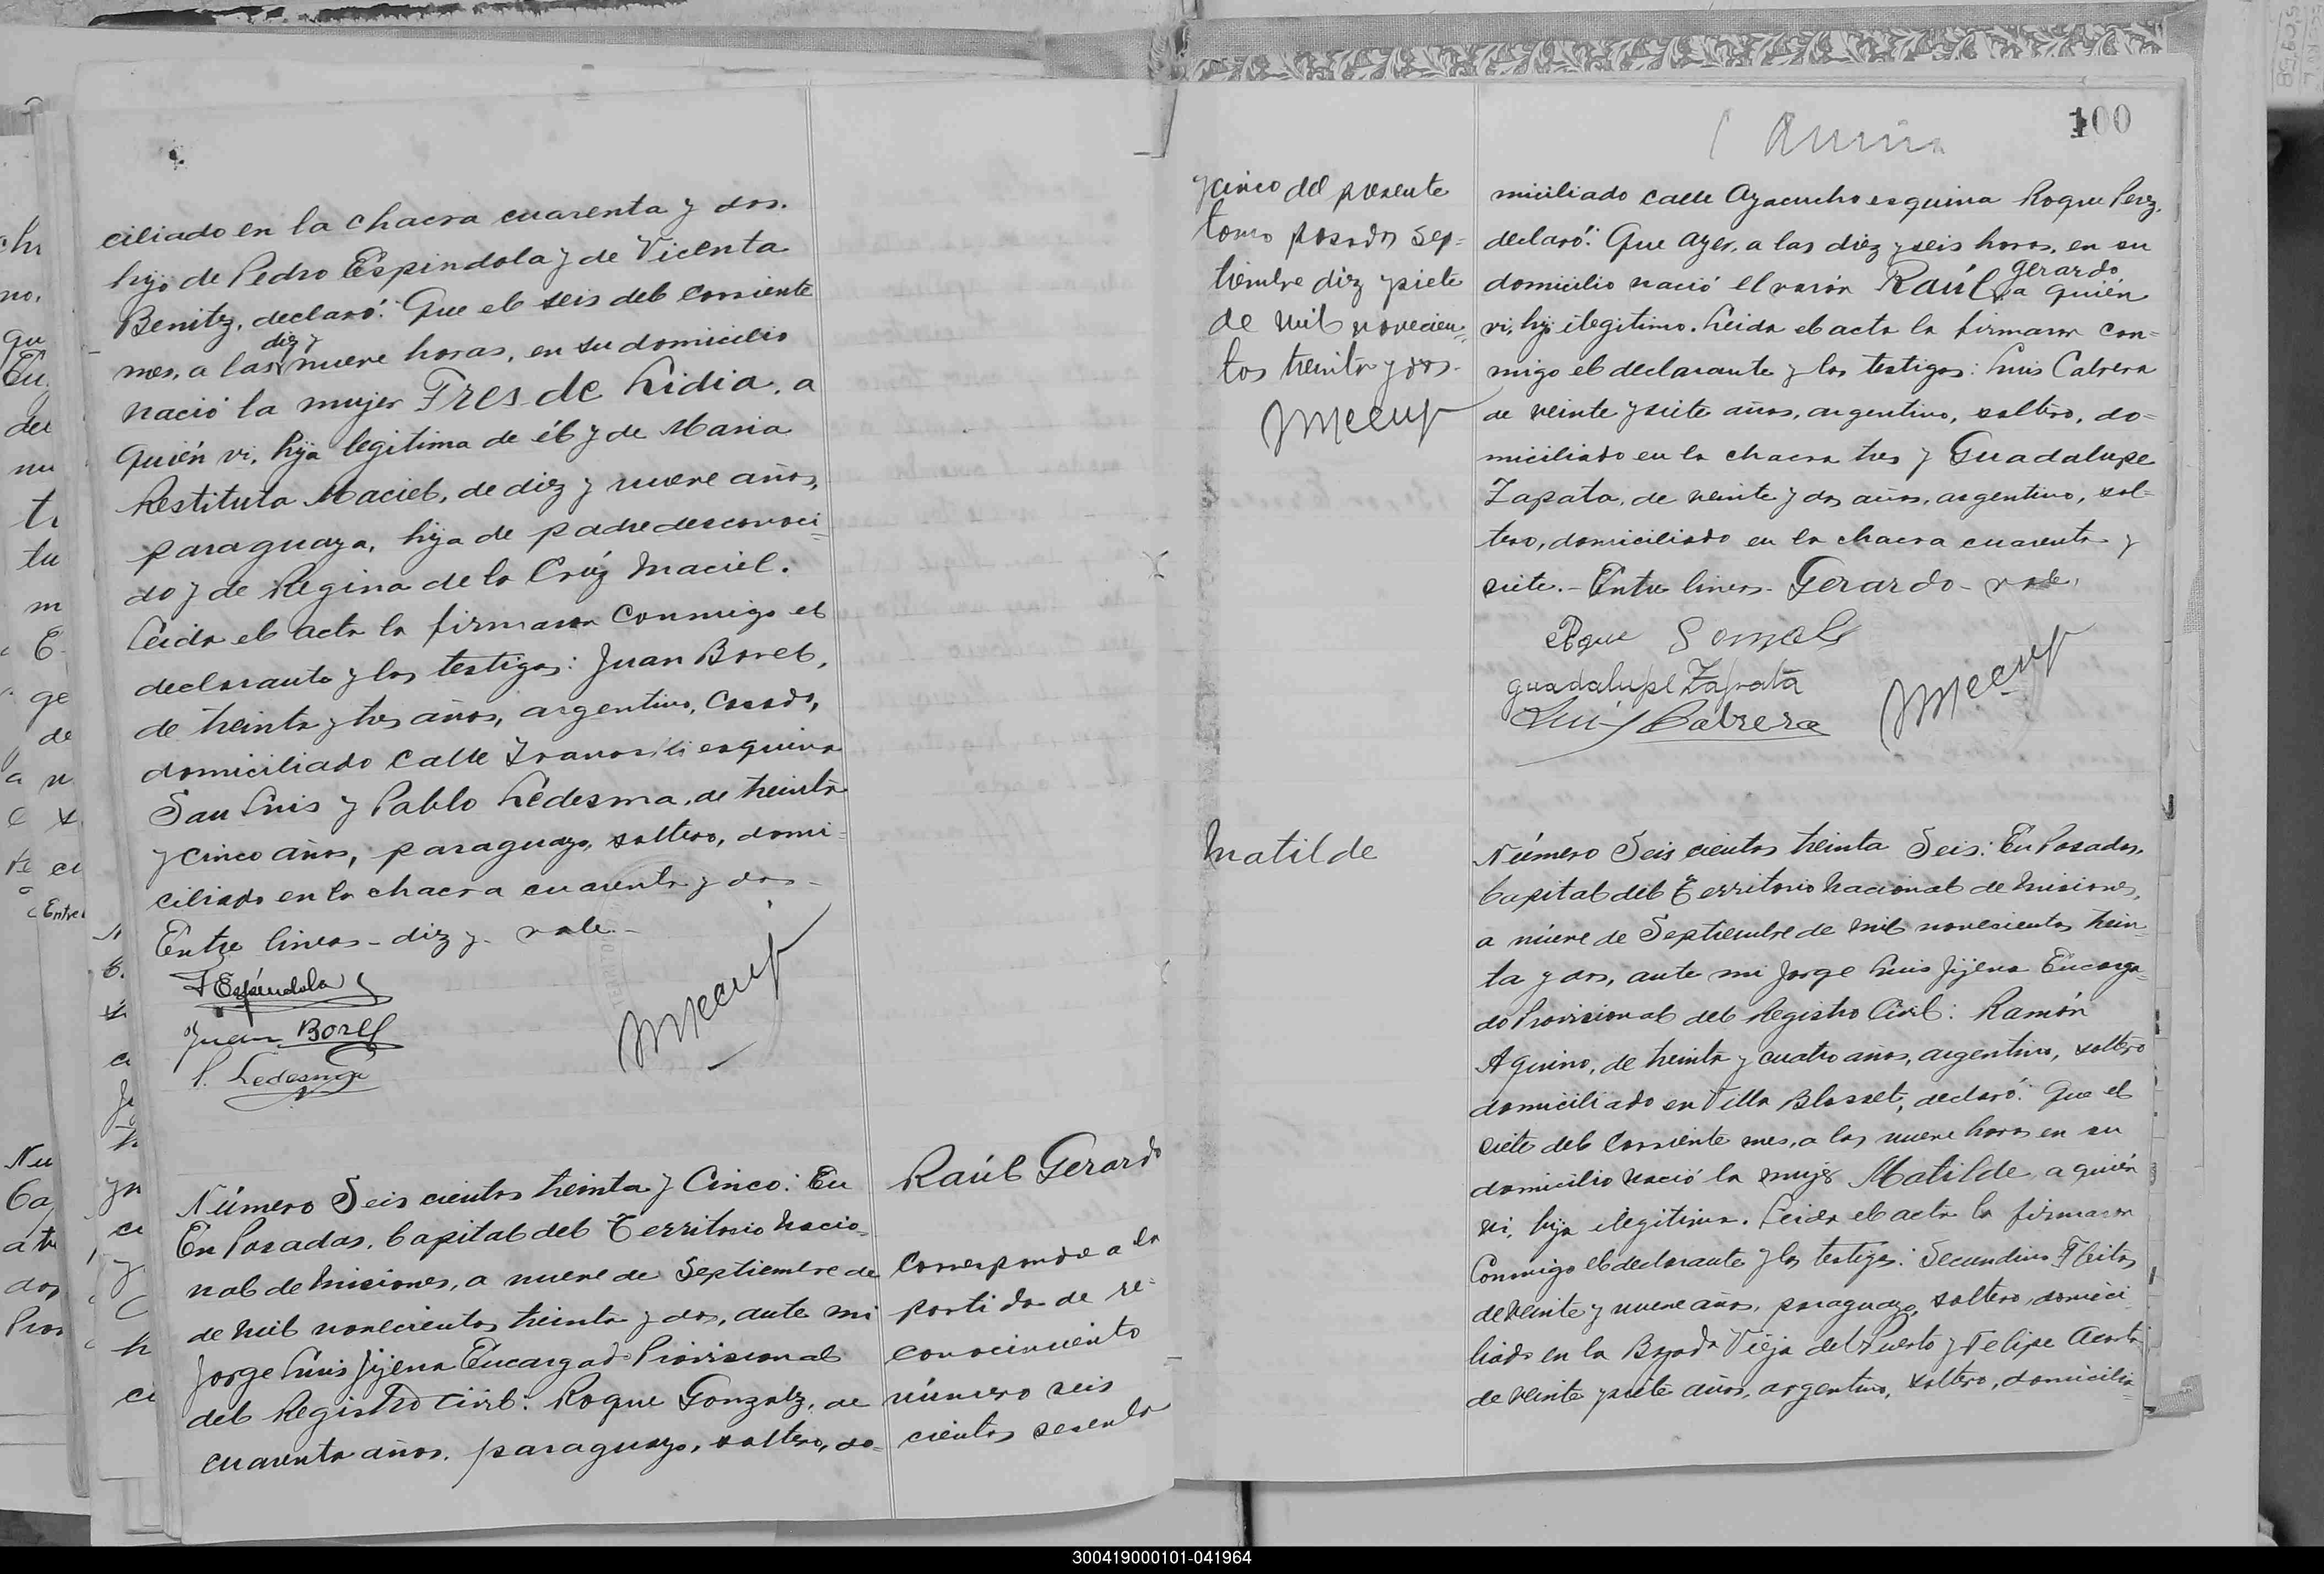 ciliado en la chacra cuarenta y dos.
hijo de Pedro Espindola y de Vicenta
Benitz, declaró: Que el seis del corriente
diez y
mes, a las nueve horas, en su domicilio
nació la mujer Fres de Lidia, a
quién vi, hija legitima de él y de Maria
Restituta Maciel, de diez y nueve años,
paraguaya, hija de padre desconoci=
do y de Regina de la Crúz Maciel.
Leida el acta la firmaron conmigo el
declarante y los testigos: Juan Borel,
de treinta y tres años, argentino, casado,
domiciliado calle esquina
San Luis y Pablo Ledesma, de treinta
y cinco años, paraguayo, soltero, domi=
ciliado en la chacra cuarenta y dos.
Entre lineas - diez y - vale.-
F Espíndola
Juan Borel
P. Ledesma
Número Seis cientos treinta y Cinco: En
En Posadas, Capital del Territorio Nacio=
nal de Misiones, a nueve de Septiembre de
de mil novecientos treinta y dos, ante mi
Jorge Luis Jijena Encargado Provisional
del Registro Civil: Roque Gonzalz, de
cuarenta años, paraguayo, soltero, do=
Raúl Gerardo
Corresponde a la
partida de re=
conocimiento
número seis
cientos sesenta
100
y cinco del presente
tomo Posadas Sep=
tiembre diez y siete
de mil novecien=
tos treinta y dos.
miciliado calle Ayacucho esquina Roque Perez,
declaró: Que ayer, a las diez y seis horas, en su
Gerardo
domicilio nació el varón Raúl, a quién
vi, hijo ilegitimo. Leida el acta la firmaron con=
migo el declarante y los testigos: Luis Cabrera
de veinte y siete años, argentino, soltero, do=
miciliado en la chacra tres y Guadalupe
Zapata, de veinte y dos años, argentino, sol=
tero, domiciliado en la chacra cuarenta y
siete.- Entre lineas - Gerardo - vale.
Roque Gonzalez
guadalupe Zapata
Luis Cabrera
Matilde
Número Seis cientos treinta Seis: En Posadas,
Capital del Territorio Nacional de Misiones,
a nueve de Septiembre de mil novecientos trein=
ta y dos, ante mi Jorge Luis Jijena Encarga=
do Provisional del Registro Civil: Ramón
Aquino, de treinta y cuatro años, argentino, soltero
domiciliado en Villa Blosset, declaró: Que el
siete del corriente mes, a las nueve horas en su
domicilio nació la mujer Matilde, a quién
vi, hija ilegitima. Leida el acta la firmaron
conmigo el declarante y los testigos: Secundino Fleitas
de veinte y nueve años, paraguayo, soltero, domici=
liado en la Bajada Vieja del Puerto y Felipe Acosta
de veinte y siete años, argentino, soltero, domicilia=
300419000101-041964